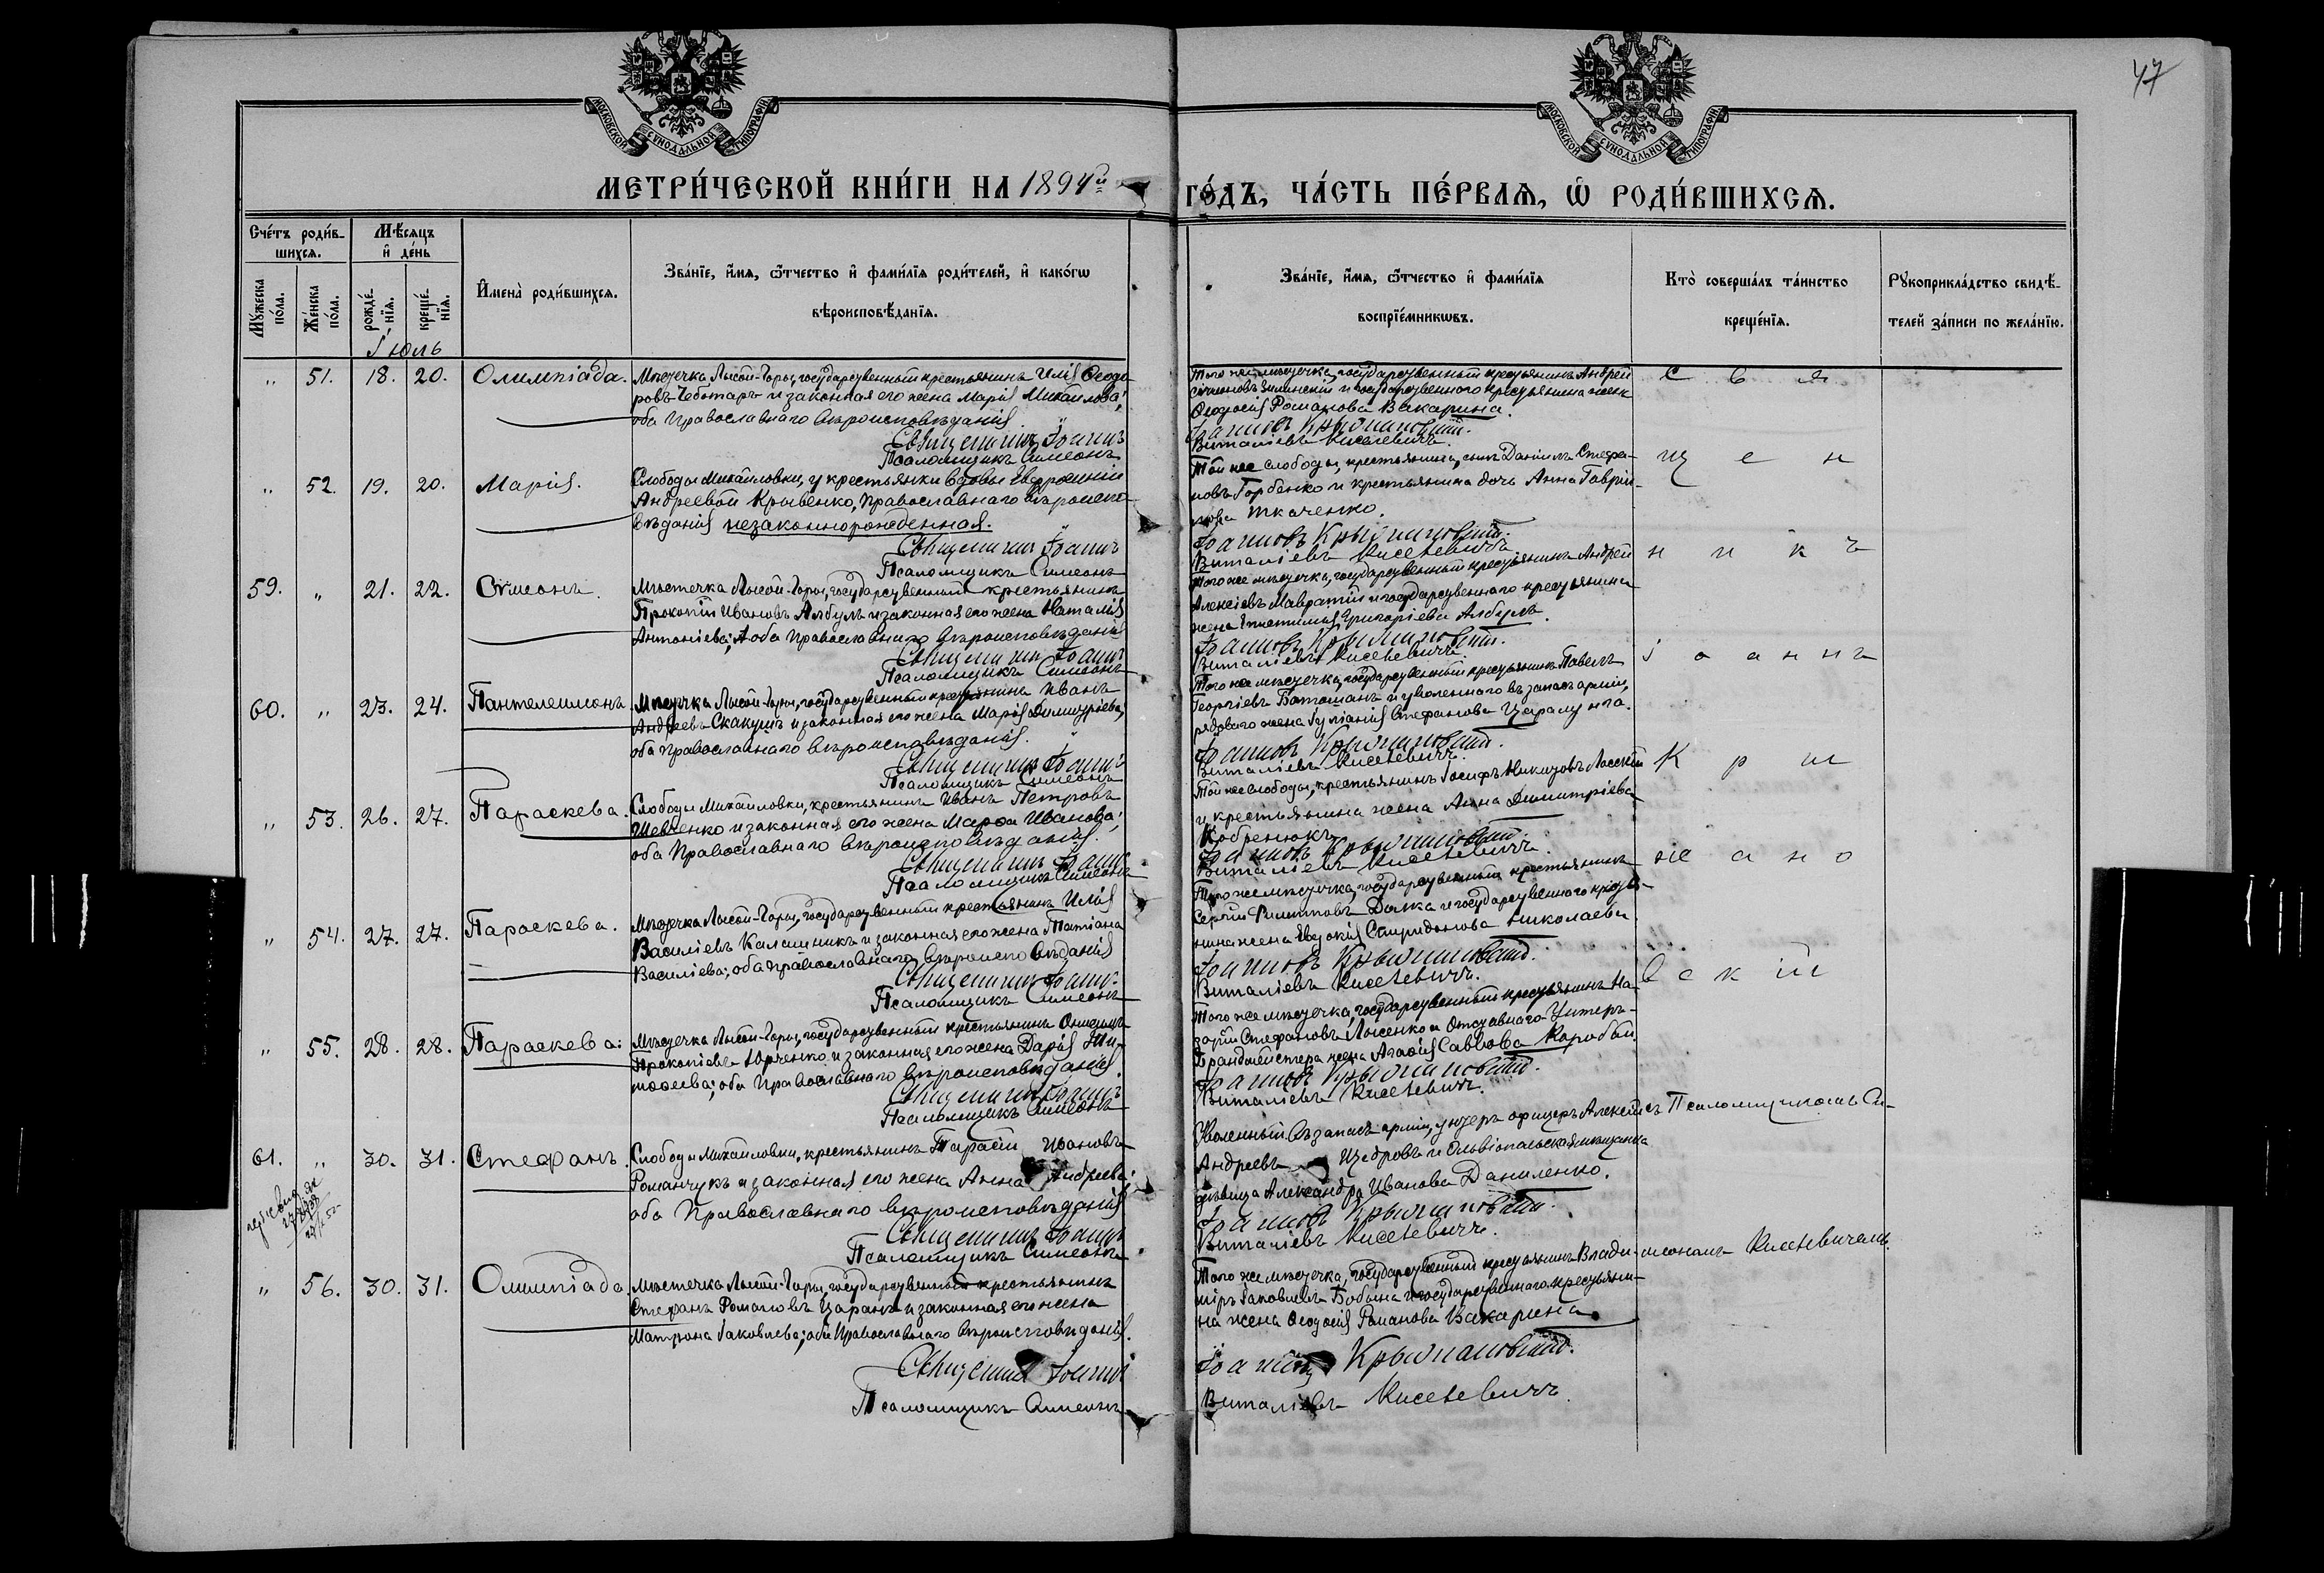 47
МОСКОВСКОЙ СУНОДАЛЬНОЙ ТИПОГРАФІИ
МОСКОВСКОЙ СУНОДАЛЬНОЙ ТИПОГРАФІИ
МЕТРИ́ЧЕСКОЙ КНИ́ГИ НА 1894й ГО́ДЪ, ЧА́СТЬ ПЕ́РВАѦ, Ѡ РОДИ́ВШИХСѦ.
Сче́тъ роди́вшихсѧ.
Мꙋ́жеска по́ла.
Же́нска по́ла.
Мѣ́сяцъ и҆ де́нь
рожде́нїѧ.
креще́нїѧ.
И҆мена̀ роди́вшихсѧ.
Зва́нїе, и҆́мѧ, ѻ҆́тчество и҆ фами́лїѧ роди́телей, и҆ како́гѡ
вѣроисповѣ́данїѧ.
Зва́нїе, и҆́мѧ, ѻ҆́тчество и҆ фами́лїѧ
воспрїе́мникѡвъ.
Кто̀ соверша́лъ та́инство
креще́нїѧ.
Рꙋкоприкла́дство свидѣ́-
телей за́писи по жела́нїю.
Іюль
" 51. 18. 20. Олимпіада.
Мѣстечка Лысой-Горы, государственный крестьянинъ Илія Ѳеодо-
ровъ Чеботарь и законная его жена Марія Михаилова;
оба Православнаго вѣроисповѣданія.
Священникъ Іоаннъ
Псаломщикъ Симеонъ
Того же мѣстечка, государственный крестьянинъ Андрей
и государственнаго крестьянина жена
Ѳеодосія Романова Вакарина.
Іоанновъ Крыжановскій.
Виталіевъ Киселевичъ.
С в я
" 52. 19. 20. Марія.
Слободы Михайловки, у крестьянки вдовы Евфросиніи
Андреевой Кривенко, Православнаго вѣроиспо-
вѣданія незаконнорожденная.
Священникъ Іоаннъ
Псаломщикъ Симеонъ
Той же слободы, крестьянина, сынъ Даніилъ Стефа-
новъ Горбенко и крестьянина дочь Анна Гаврии-
лова Ткаченко.
Іоанновъ Крыжановскій.
Виталіевъ Киселевичъ.
щ е н
н и к ъ
59. " 21. 22. Сѵмеонъ.
Мѣстечка Лысой-Горы, государственный крестьянинъ
Прокопій Ивановъ Албулъ и законная его жена Наталія
Антоніева; оба Православнаго вѣроисповѣданія
Священникъ Іоаннъ
Псаломщикъ Симеонъ
Того же мѣстечка, государственный крестьянинъ Андрей
Алексіевъ и государственнаго крестьянина
жена Епистимія Григоріева Албулъ.
Іоанновъ Крыжановскій.
Виталіевъ Киселевичъ.
І о а н н ъ
60. " 23. 24. Пантелеимонъ.
Мѣстечка Лысой-Горы, государственный крестьянинъ Иванъ
Андреевъ Скакунъ и законная его жена Марія Димитріева;
оба православнаго вѣроисповѣданія.
Священникъ Іоаннъ
Псаломщикъ Симеонъ
Того же мѣстечка, государственный крестьянинъ Павелъ
Георгіевъ Ботошанъ и уволеннаго въ запасъ арміи,
рядового жена Іуліанія Стефанова
Іоанновъ Крыжановскій.
Виталіевъ Киселевичъ.
К р ы
" 53. 26. 27. Параскева.
Слободы Михайловки, крестьянинъ Иванъ Петровъ
Шевченко и законная его жена Марѳа Иванова;
оба Православнаго вѣроисповѣданія.
Священникъ Іоаннъ
Псаломщикъ Симеонъ
Той же слободы, крестьянинъ Іосифъ Никитовъ
и крестьянина жена Анна Димитріева
Кобренюкъ.
Іоанновъ Крыжановскій.
Виталіевъ Киселевичъ.
ж а н о
" 54. 27. 27. Параскева.
Мѣстечка Лысой-Горы, государственный крестьянинъ Илія
Василіевъ Калашникъ и законная его жена Татіана
Василіева; оба православнаго вѣроисповѣданія
Священникъ Іоаннъ
Псаломщикъ Симеонъ
Того же мѣстечка, государственный крестьянинъ
Сергій Филипповъ и государственнаго кресть-
янина жена Евдокія Спиридонова Николаева
Іоанновъ Крыжановскій.
Виталіевъ Киселевичъ.
в с к і й
" 55. 28. 28. Параскева.
Мѣстечка Лысой-Горы, государственный крестьянинъ Онисимъ
Прокопіевъ Юрченко и законная его жена Дарія Ти-
моѳеева; оба Православнаго вѣроисповѣданія.
Священникъ Іоаннъ
Псаломщикъ Симеонъ
Того же мѣстечка, государственный крестьянинъ На-
зарій Стефановъ Лысенко и Отставнаго Унтеръ-
Брандмейстера жена Агаѳія Саввова Коробай
Іоанновъ Крыжановскій.
Виталіевъ Киселевичъ.
съ Псаломщикомъ Си-
61. " 30. 31. Стефанъ.
Слободы Михайловки, крестьянинъ Тарасій Ивановъ
Романчукъ и законная его жена Анна Андреева;
оба Православнаго вѣроисповѣданія
Священникъ Іоаннъ
Псаломщикъ Симеонъ
Уволенный въ запасъ арміи, унтеръ офицеръ Алексій
Андреевъ Щедровъ и Ольвіопольская мѣщанка
дѣвица Александра Иванова Даниленко.
Іоанновъ Крыжановскій.
Виталіевъ Киселевичъ.
меономъ Киселевичемъ.
" 56. 30. 31. Олимпіада.
Мѣстечка Лысой-Горы, государственный крестьянинъ
Стефанъ Романовъ Царанъ и законная его жена
Матрона Іаковлева; оба Православнаго вѣроисповѣданія.
Священникъ Іоаннъ
Псаломщикъ Симеонъ
Того же мѣстечка, государственный крестьянинъ Влади-
міръ Іаковлевъ и государственнаго крестьяни-
на жена Ѳеодосія Романова Вакарина
Іоанновъ Крыжановскій.
Виталіевъ Киселевичъ.